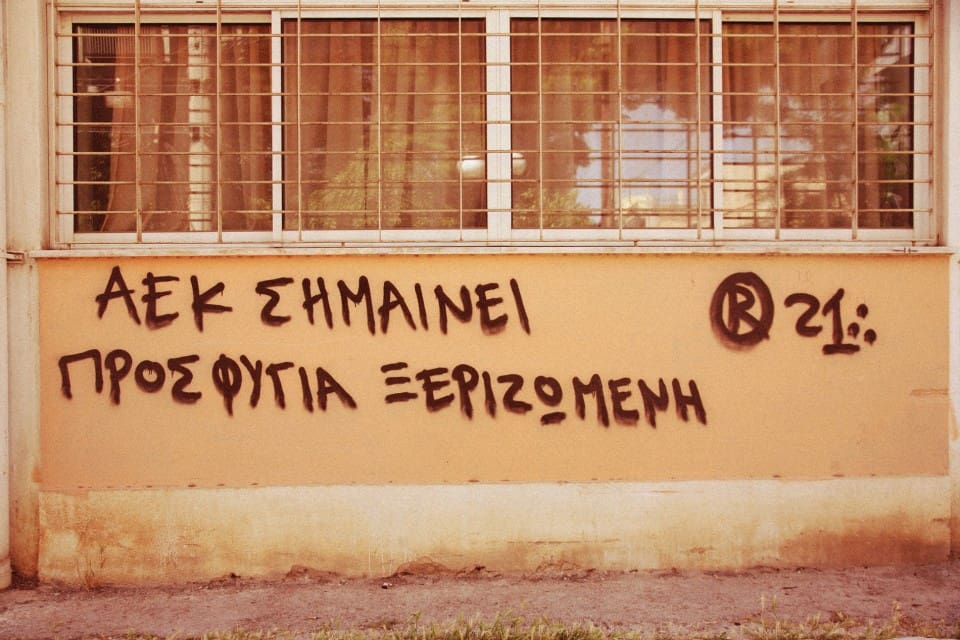 ΑΕΚ ΣΗΜΑΙΝΕΙ
ΠΡΟΣΦΥΓΙΑ ΞΕΡΙΖΩΜΕΝΗ
® 21